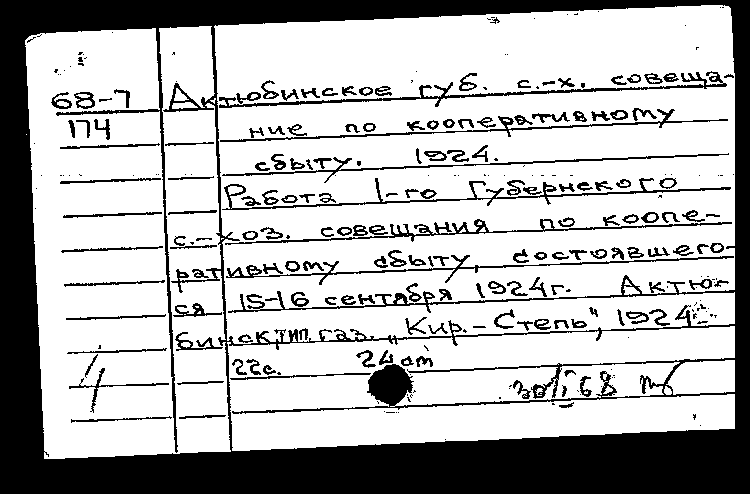 68-7 Актюбинское губ. с.-х. совеща-
174 ние по кооперативному
сбыту. 1924.
Работа 1-го Губернского
с.-хоз. совещания по коопе-
ративному сбыту, состоявшего-
ся 15-16 сентября 1924г. Актю-
бинск, тип. газ. „Кир.-Степь", 1924
22с. 24 см
68